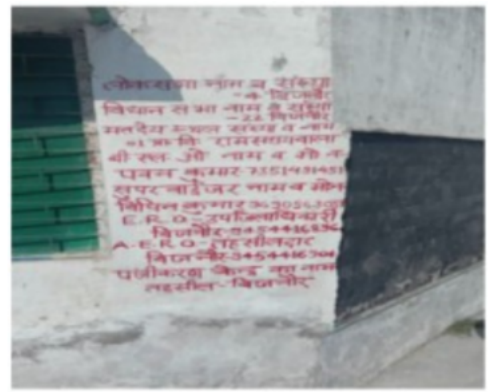 लोकसभा नाम व संख्या
-4 बिजनौर
विधान सभा नाम व संख्या
-22 बिजनौर
मतदेय स्थल संख्या व नाम
वि. रामसहायवाला
बी एल ओ नाम व मो न
पवन कुमार
सुपरवाईजर नाम व मोन
विपिन कुमार
E.R.O-उपजिलाधिकारी
बिजनौर-
A.E.R.O-तहसीलदार
बिजनौर-
पंजीकरण केन्द्र का नाम
तहसील-बिजनौर